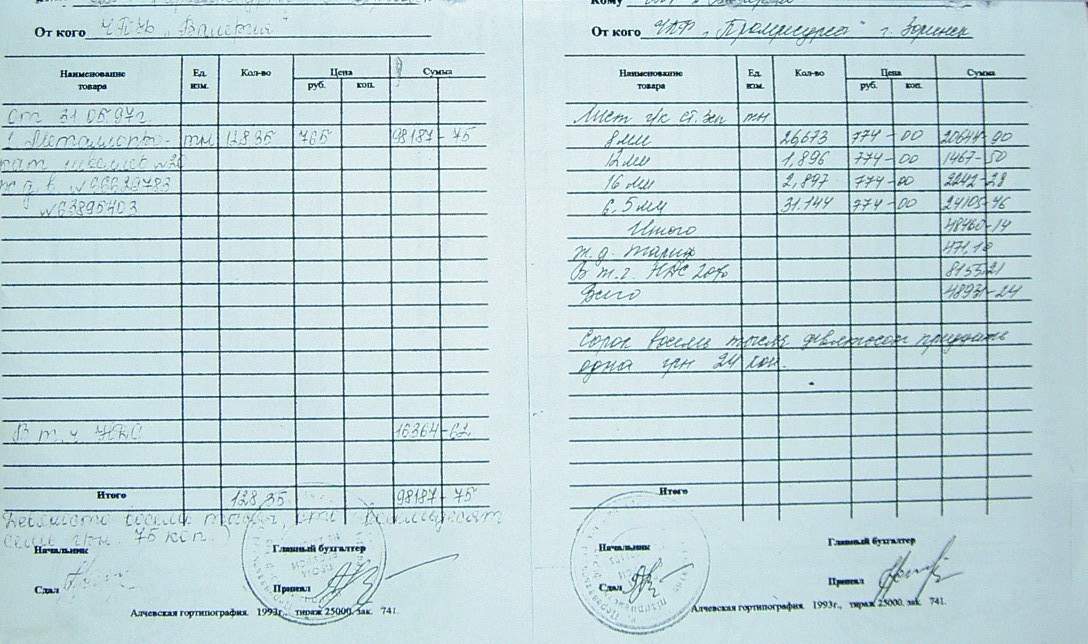 От кого ЧПКФ „Валерия"
Наименование товара Ед. изм. Кол-во Цена Сумма
руб. коп.
От 31.05.97г.
1. Металлопро- тн 128.35 765 98187-75
кат швеллер №20
ж.д.в. №66629783
№63895403
В т.ч. НДС 16364-62
Итого 128.35 98187-75
Девяносто восемь тысяч, сто восемьдесят
семь грн. 75 коп.)
Начальник Главный бухгалтер
Сдал Принял
Алчевская гортипография. 1993г., тираж 25000, зак. 741.
Кому
От кого ЧПФ „Промресурсы" г. Зоринск
Наименование товара Ед. изм. Кол-во Цена Сумма
руб. коп.
Лист г/к ст. 3сп тн
8 мм 26,673 774-00 20644-90
12 мм 1,896 774-00 1467-50
16 мм 2,897 774-00 2242-28
6,5 мм 31.144 774-00 24105-46
Итого 48460-14
ж.д. тариф 471,10
В т.ч. НДС 20% 8155,21
Всего 48931-24
Сорок восемь тысяч девятьсот тридцать
одна грн 24 коп.
Итого
Начальник Главный бухгалтер
Сдал Принял
Алчевская гортипография. 1993г., тираж 25000, зак. 741.